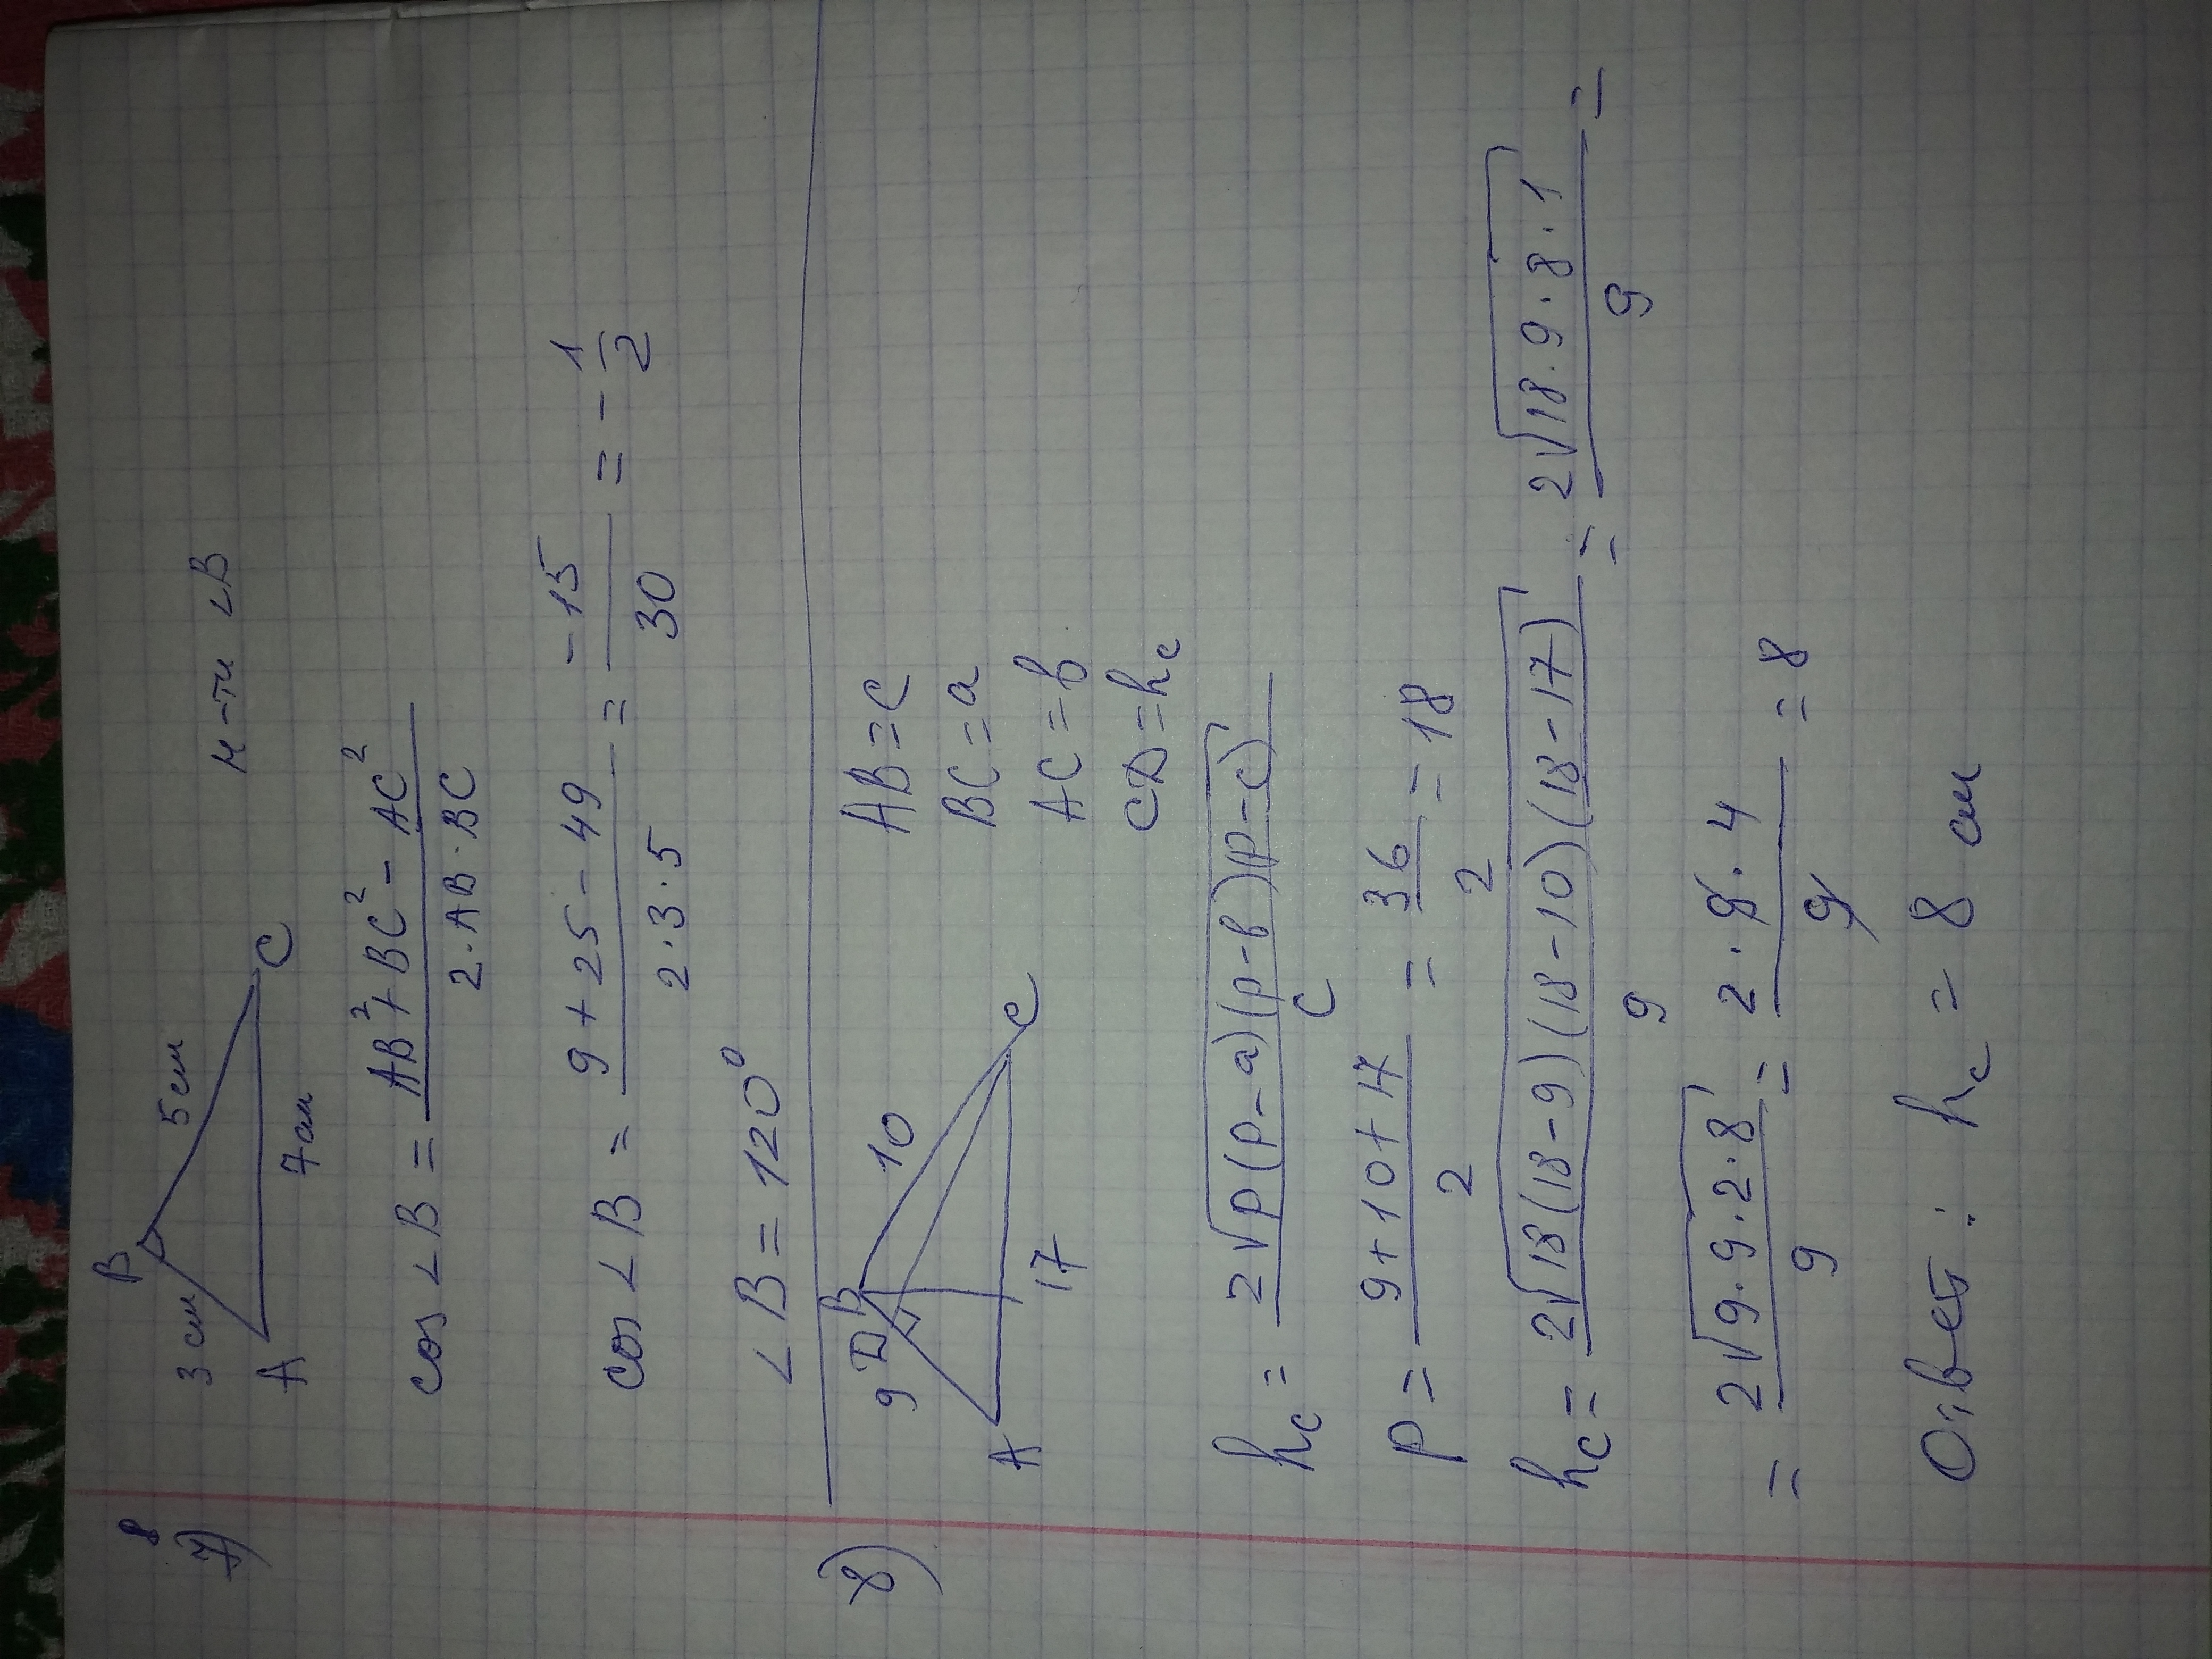 8
7)
B
3 см
5 см
A
7 см
C
н-ти ∠B
cos ∠B = (AB² + BC² - AC²) / (2·AB·BC)
cos ∠B = (9 + 25 - 49) / (2·3·5) = -15/30 = -1/2
∠B = 120°
8)
9
D
B
10
A
17
C
AB = c
BC = a
AC = b
CD = h_c
h_c = 2√(p(p-a)(p-b)p-c) / c
p = (9+10+17) / 2 = 36/2 = 18
h_c = 2√(18(18-9)(18-10)(18-17)) / 9 = 2√(18·9·8·1) / 9 =
= 2√(9·9·2·8) / 9 = (2·9·4) / 9 = 8
Ответ: h_c = 8 см